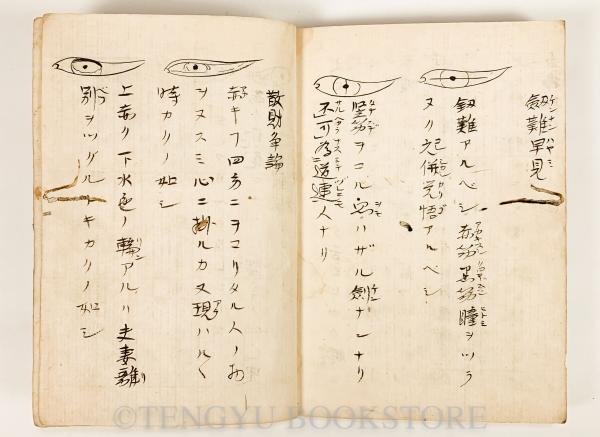 剱難早見
剱難アルベシ 赤筋黒筋瞳ヲツラ
ヌク 覚悟アルベシ
竪筋ヲコル ハザル剱ナンナリ
不可為道連人ナリ
散財争論
四方ニヲコリタル人ノ物
ヲヌスミ心ニ掛ルカ又現ハルヽ
時カリノ如シ
上赤ク下水色ノ輪アルハ夫妻離
別ヲツグルトキカリノ如シ
©TENGYU BOOKSTORE